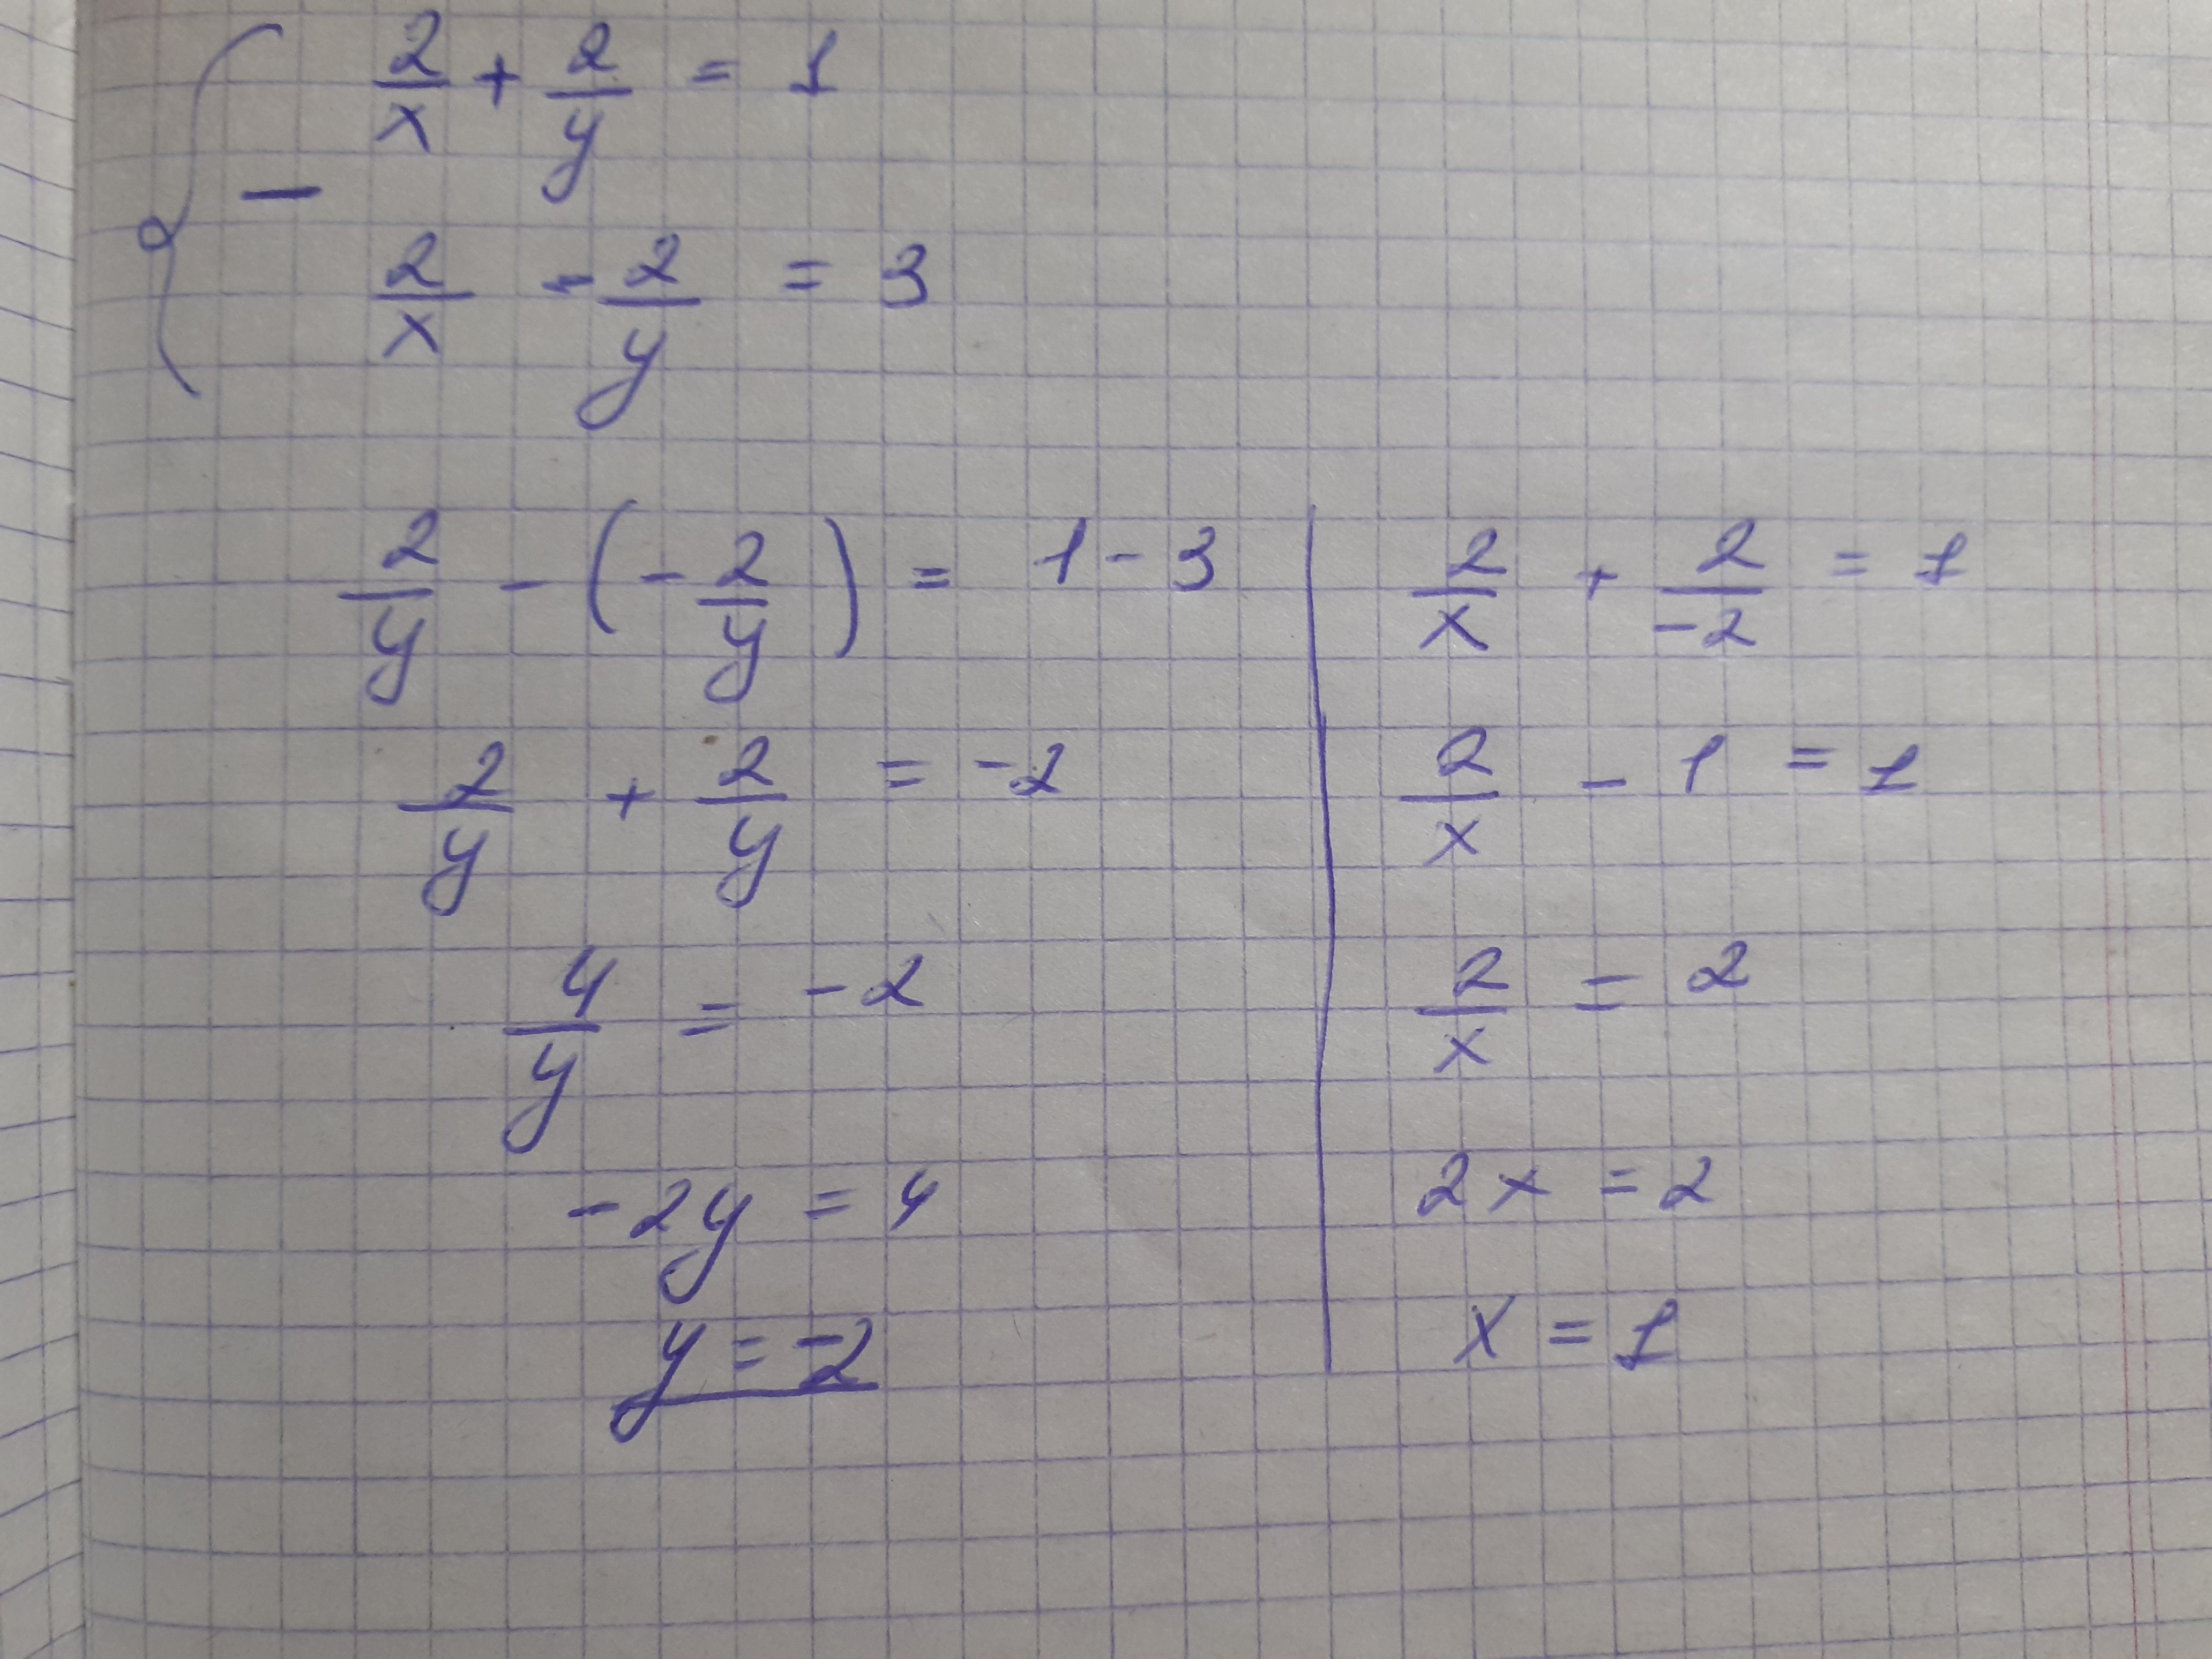 2/x + 2/y = 1
−
2/x - 2/y = 3
2/y - (- 2/y) = 1 - 3
2/y + 2/y = -2
4/y = -2
-2y = 4
y = -2
2/x + 2/-2 = 1
2/x - 1 = 1
2/x = 2
2x = 2
x = 1